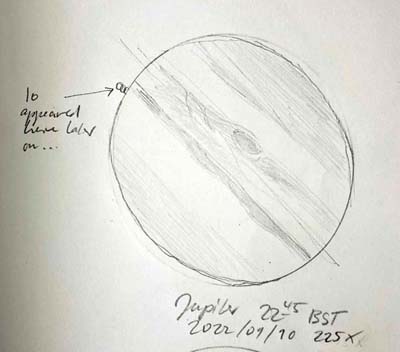 Io
appeared
here later
on...
Jupiter 22 45 BST
2022/09/10 225x